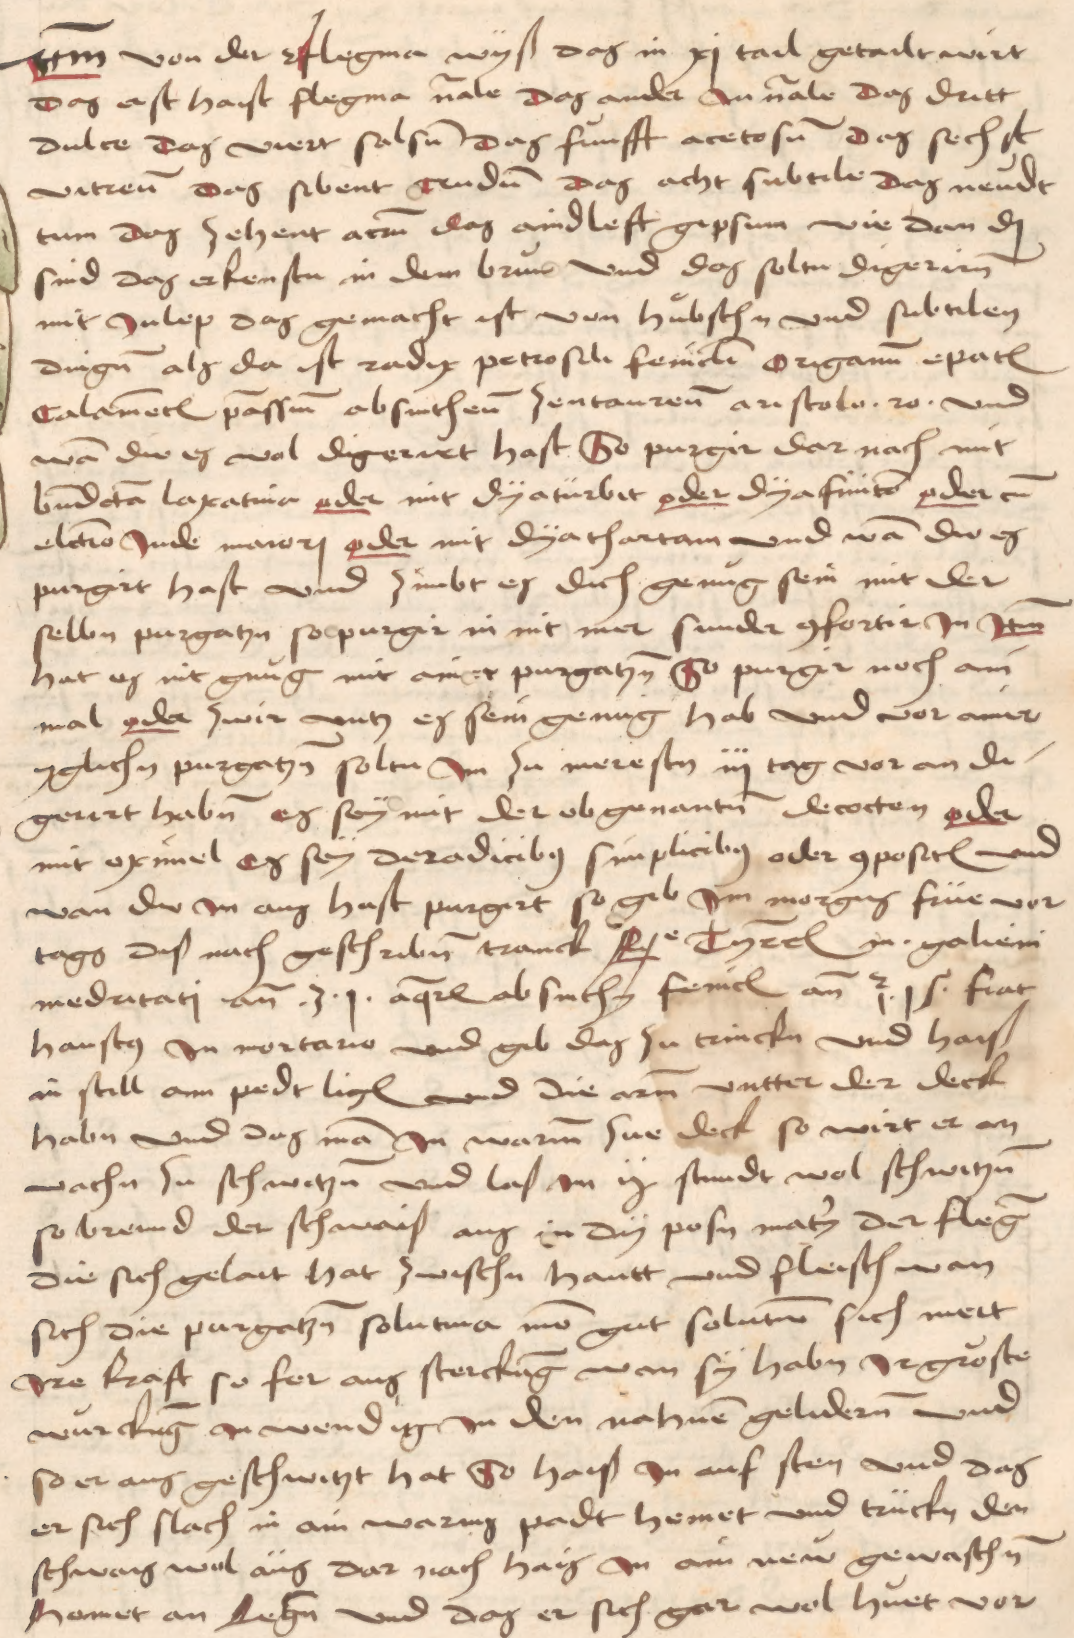 Itm von der flegma wyß das in xj tail getailt wirt
Das erst haist flegma nãle Das ander Innãle Das dritt
dulce Das viert salsũ Das funfft acetosũ Das sechst
vitreũ Das sibent Crudũ Das acht subtile Das neudt
tum Das zehent acrũ das aindleft gipsum wie dan dj
sind das erkenstu in dem brun vnd das soltu digerirñ
mit Julep das gemacht ist von hubschn vnd subtilen
dingñ als da ist radix petrosili feniculi Origanũ epatl
Calamẽtl passiũ absintheũ Zentaureũ aristolo. ro. vnd
wã dw es wol digerirt hast So purgir dar nach mit
bñdctã laxatiua oder mit dyaturbit oder dyafinicõ oder cũ
elctrõ Jnde maiorj oder mit dyathartam vnd wã dw es
purgirt hast vnd zimbt es dich genug sein mit der
selbn purgatzn so purgir in nit mer sunder 9fortir In Itm̃
hat es nit gnug mit ainer purgatzñ So purgir noch ain
mal oder zwir vntz es sein genug hab vnd vor ainer
yglichn purgatzñ soltu Im zu merestn iij tag vor an di
gerirt habñ es sey mit der obgenantñ decocten oder
mit oximel es sey de radicib9 simplicib9 oder 9positl vnd
wan dw In aus hast purgirt so gib Im morgns frue vor
tags diß nach geschribñ tranck Rpe Tyrcl m. galieni
medritatj añ .ʒ.j. aq̃rl absinthy fenicl añ ℥.j ß. fiat
haust9 In mortario vnd gib das zu trinckn vnd haiß
in still am pedt ligl vnd die arm̃ vntter der deck
habn vnd das mã In warm̃ zue deck so wirt er an
vachn zu schwitzñ vnd laß Im ij stundt wol schwitzñ
so brennd der schwaiß aus in dy posn matr̃ der flegm̃
die sich gelait hat zwischn hautt vnd fleisch wan
sich die purgatzñ solutiua mõ gut solutiuẽ sich nicht
Ire kraft so fer aus sterckñg wan sy habn Ir groste
wurckñg Inwendig In den nahnẽ gelidernn vnd
so er aus geschwitzt hat So haiß In auf sten vnd das
er sich slach in ain warms padt hemet vnd truckn den
schwais wol aus dar nach hais In ain new gewaschñ
hemet an legñ vnd das er sich gar wol huet vor